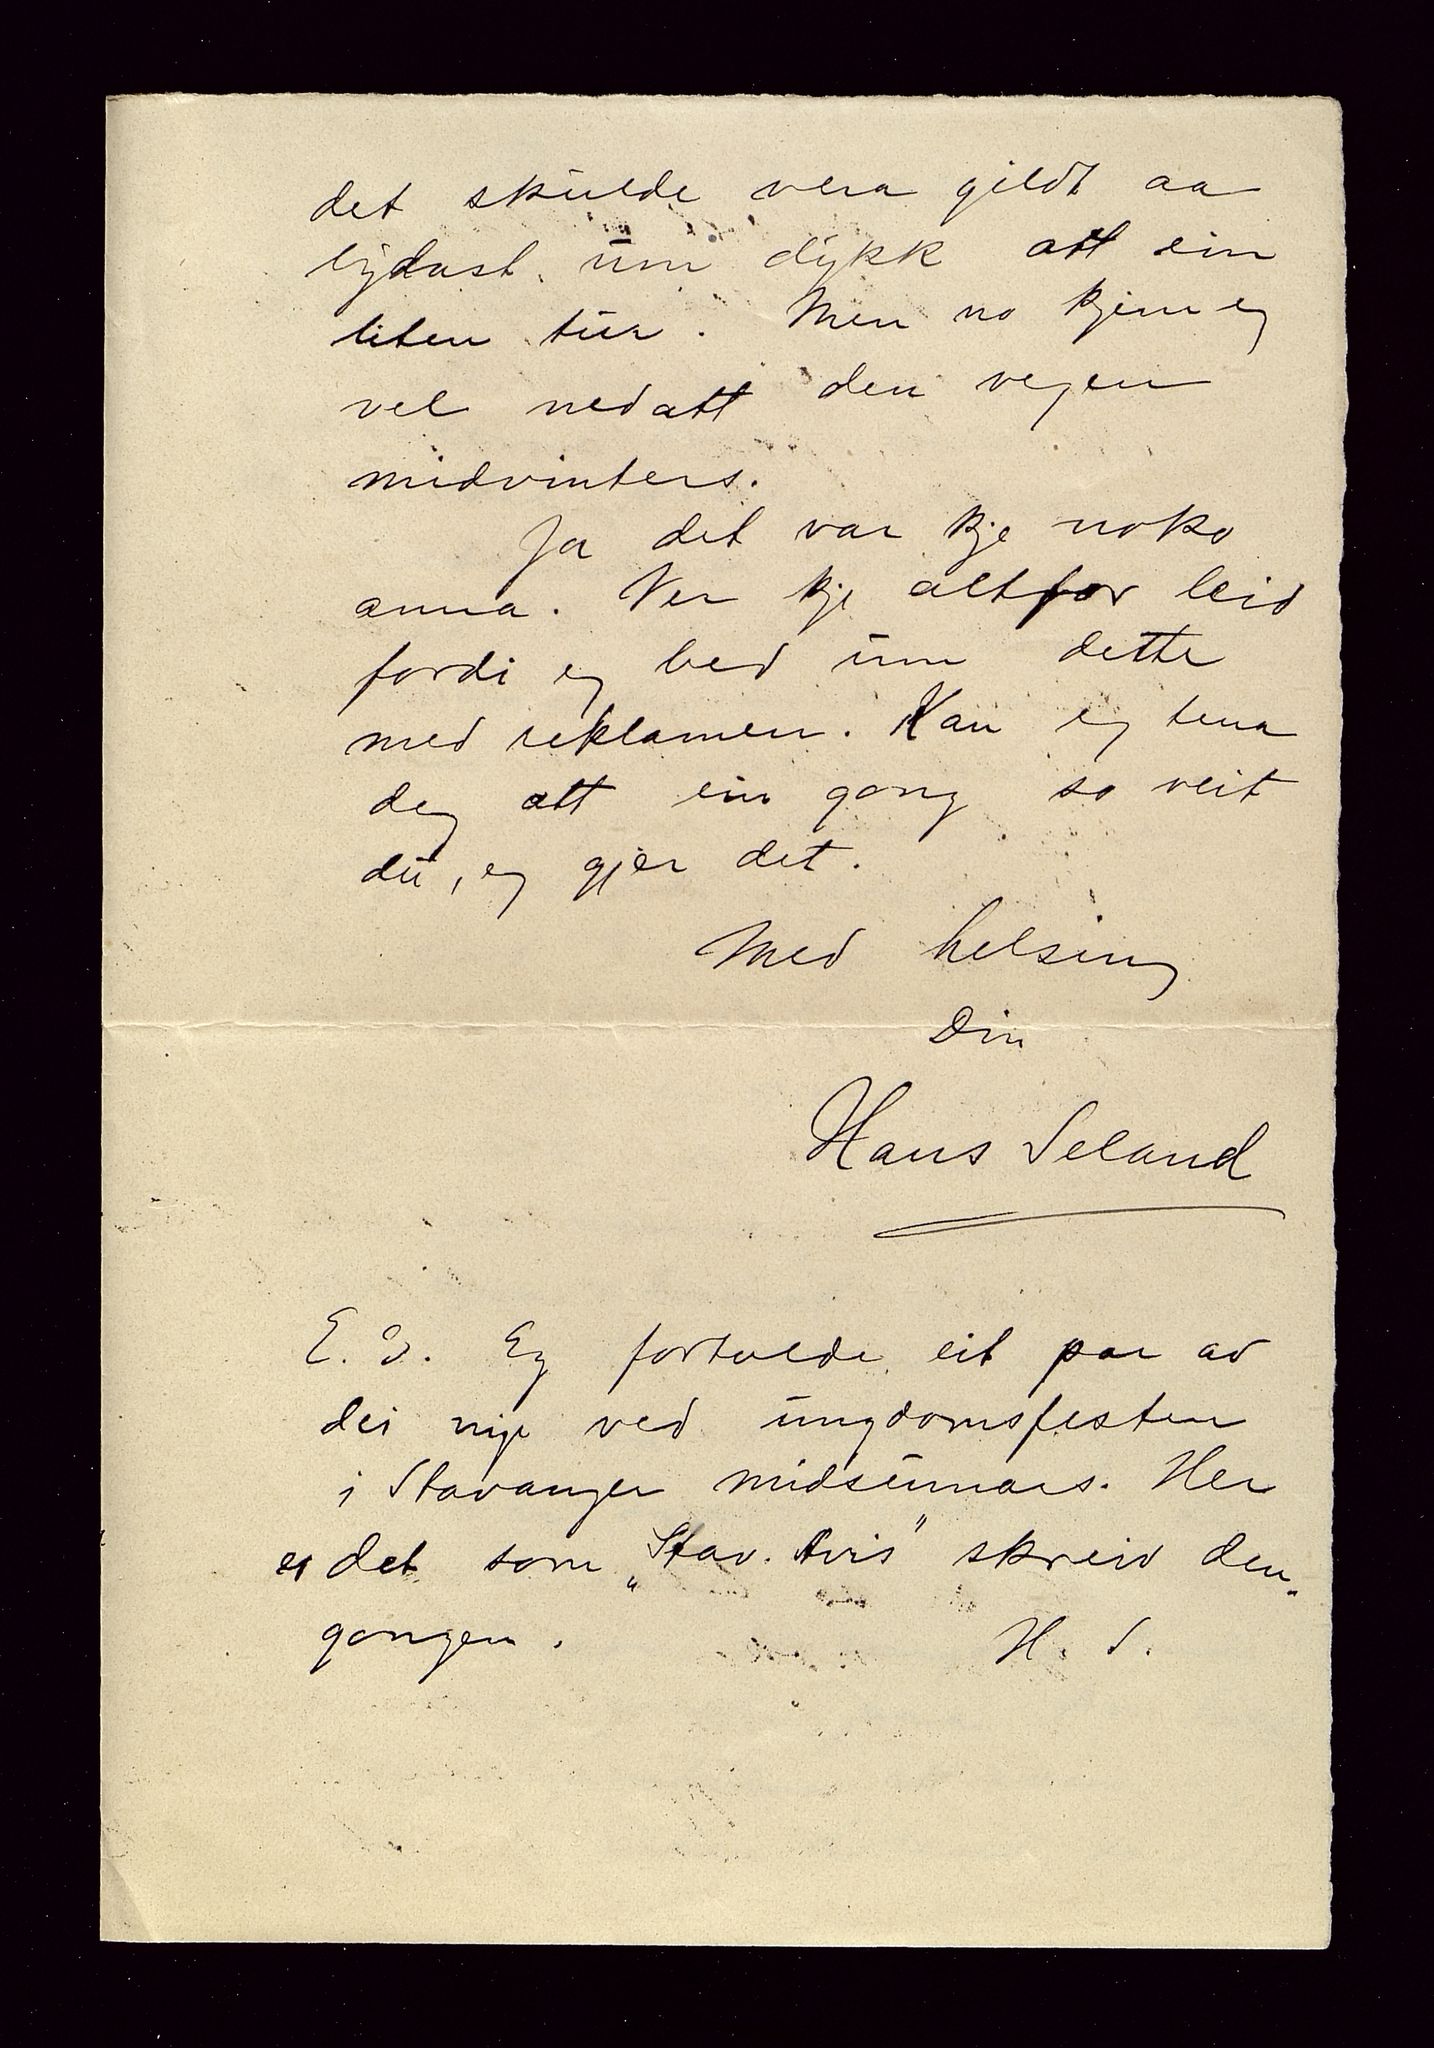 det skulde vera gildt aa
lydast um dykk att ein
liten tur. Men no kjem eg
vel nedatt den vegen
midvinters.
Ja det var kje noko
anna. Ver kje altfor leid
fordi eg bed um dette
med reklamen. Kan eg tena
deg att ein gong so veit
du, eg gjer det.
Med helsing
Din
Hans Seland
E. S. Eg fortalde eit par av
dei nye ved ungdomsfesten
i Stavanger midsumars. Her
er det som „Stav. Avis" skreiv den-
gongen. H. S.